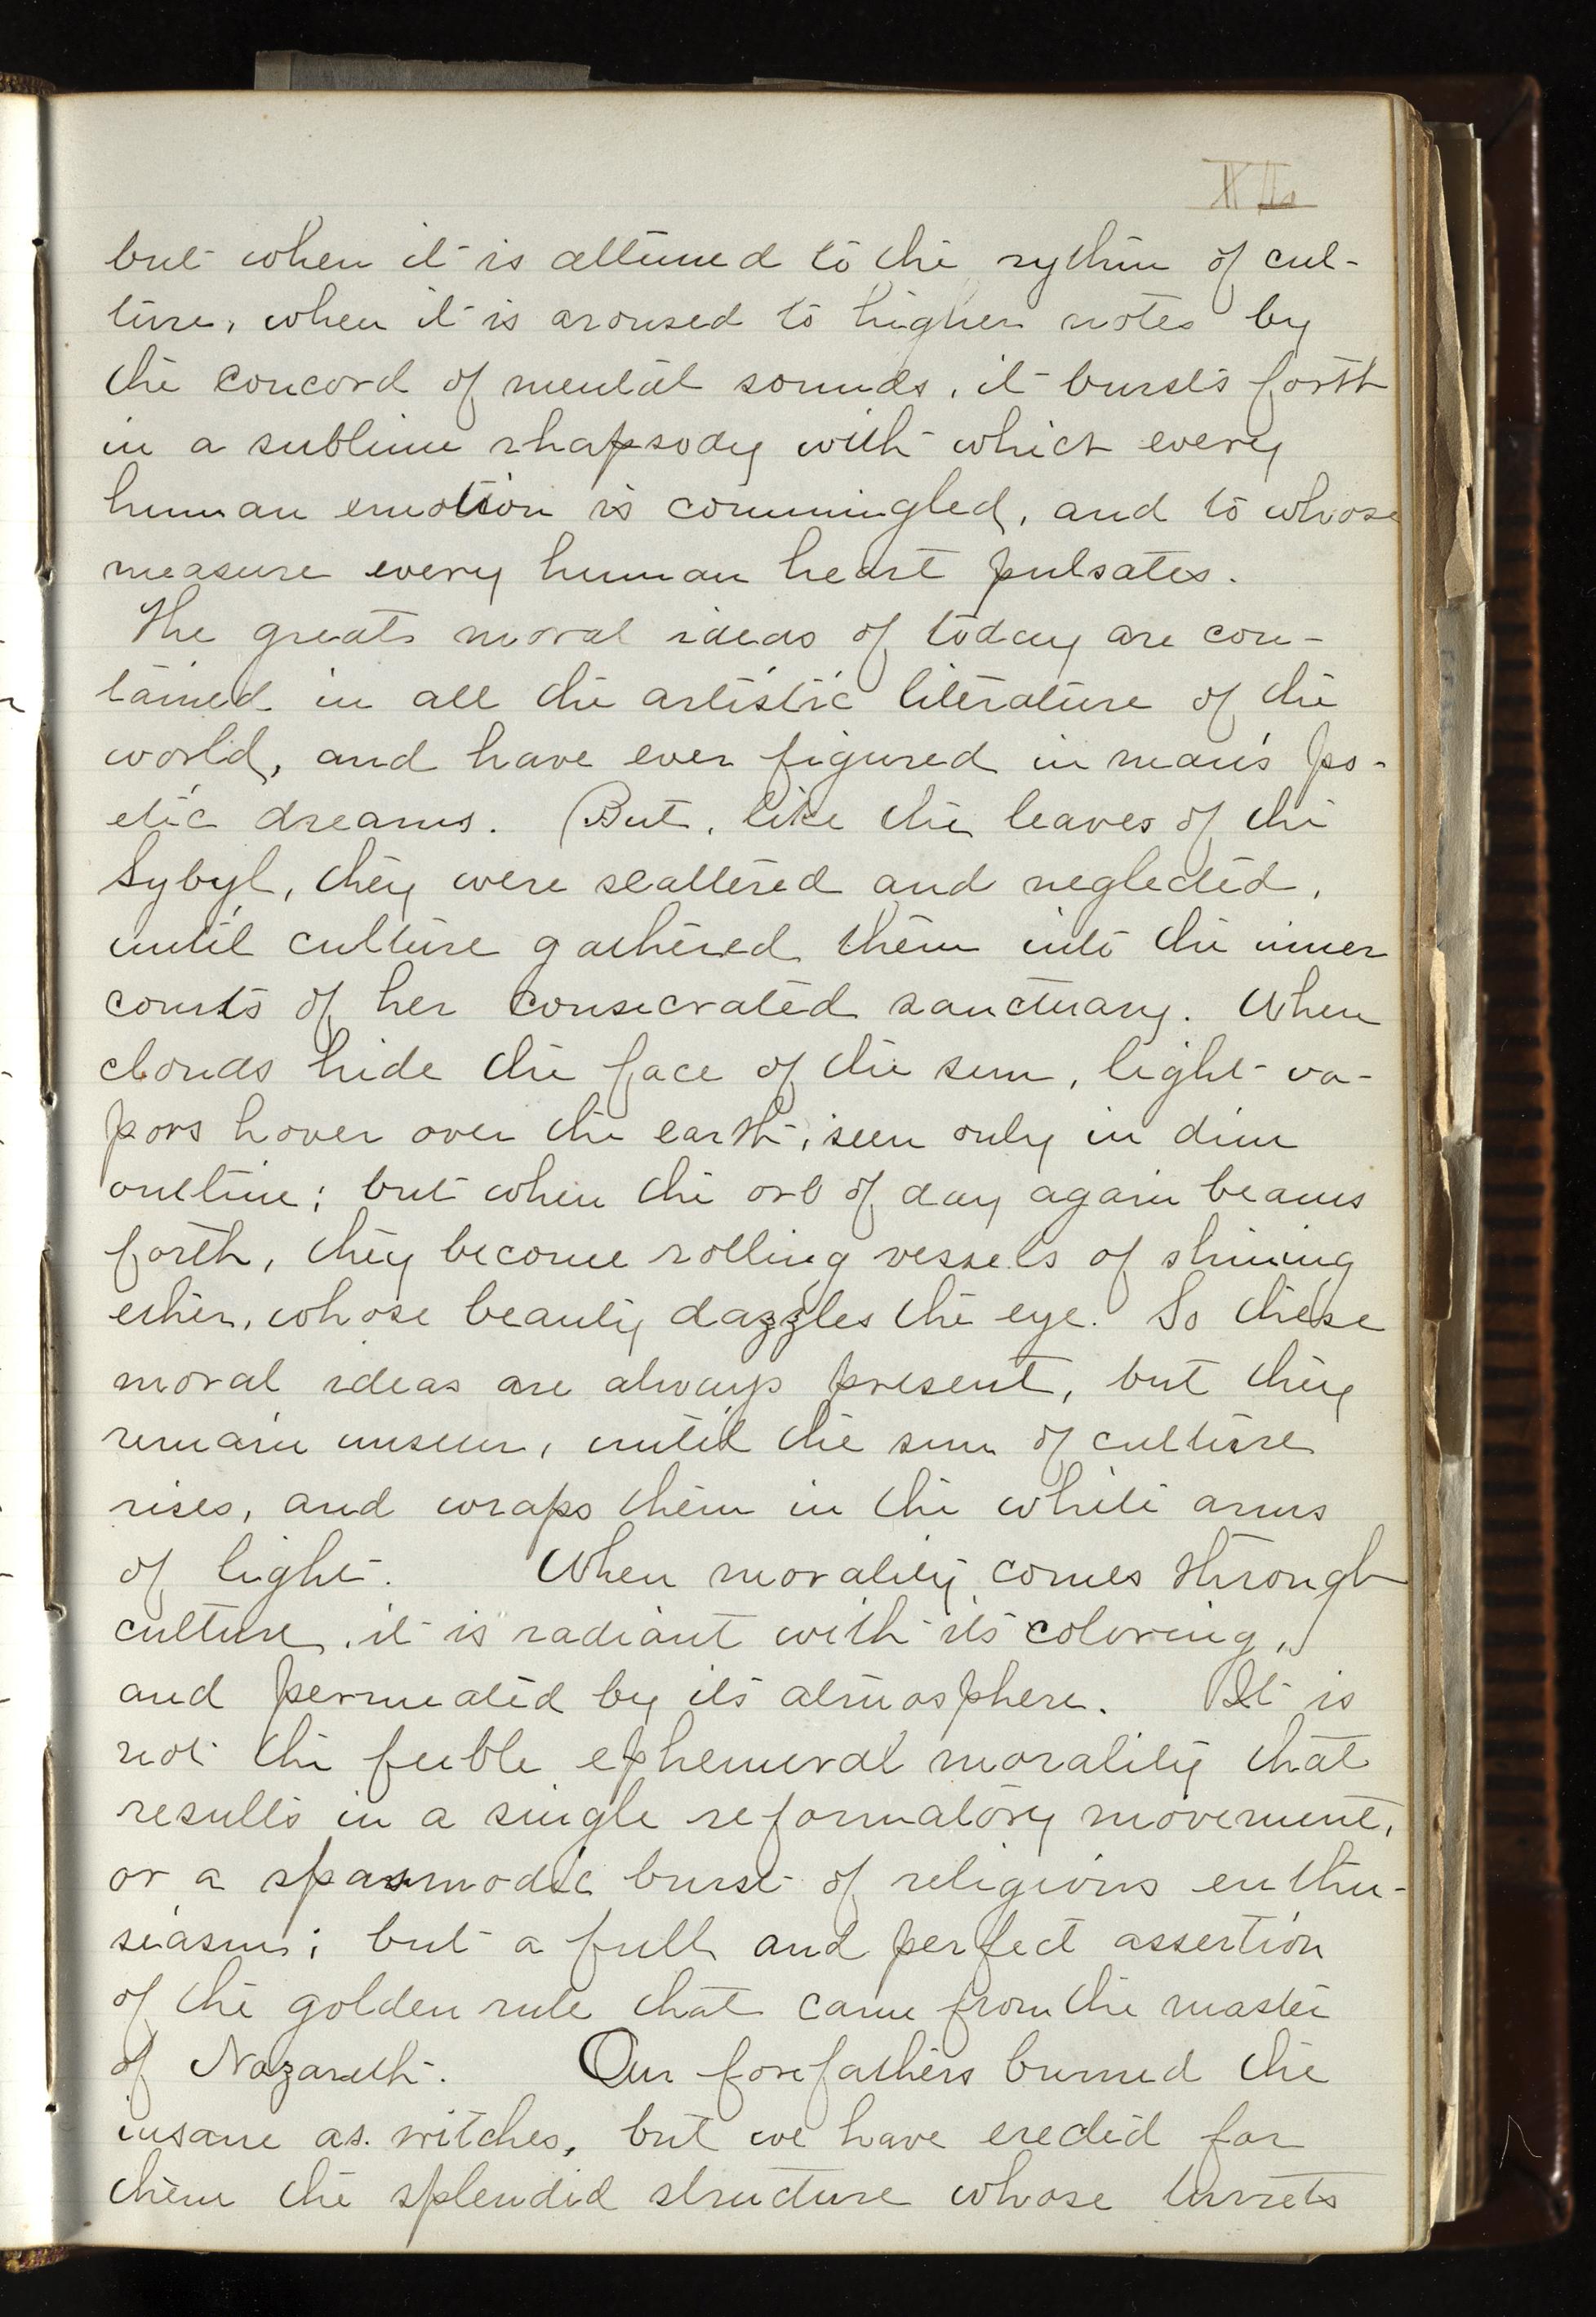 XII
but when it is attuned to the rythm of cul-
ture, when it is aroused to higher notes by
the concord of mental sounds, it bursts forth
in a sublime rhapsody with which every
human emotion is commingled, and to whose
measure every human heart pulsates.
The great moral ideas of today are con-
tained in all the artistic literature of the
world, and have ever figured in man's po-
etic dreams. But, like the leaves of the
Sybyl, they were scattered and neglected,
until culture gathered them into the inner
courts of her consecrated sanctuary. When
clouds hide the face of the sun, light va-
pors hover over the earth, seen only in dim
outline; but when the orb of day again beams
forth, they become rolling vessels of shining
ether, whose beauty dazzles the eye. So these
moral ideas are always present, but they
remain unseen, until the sun of culture
rises, and wraps them in the white arms
of light. When morality comes through
culture, it is radiant with its coloring,
and permeated by its atmosphere. It is
not the feeble ephemeral morality that
results in a single reformatory movement,
or a spasmodic burst of religious enthu-
siasm; but a full and perfect assertion
of the golden rule that came from the master
of Nazareth. Our forefathers burned the
insane as witches, but we have erected for
them the splendid structure whose turrets